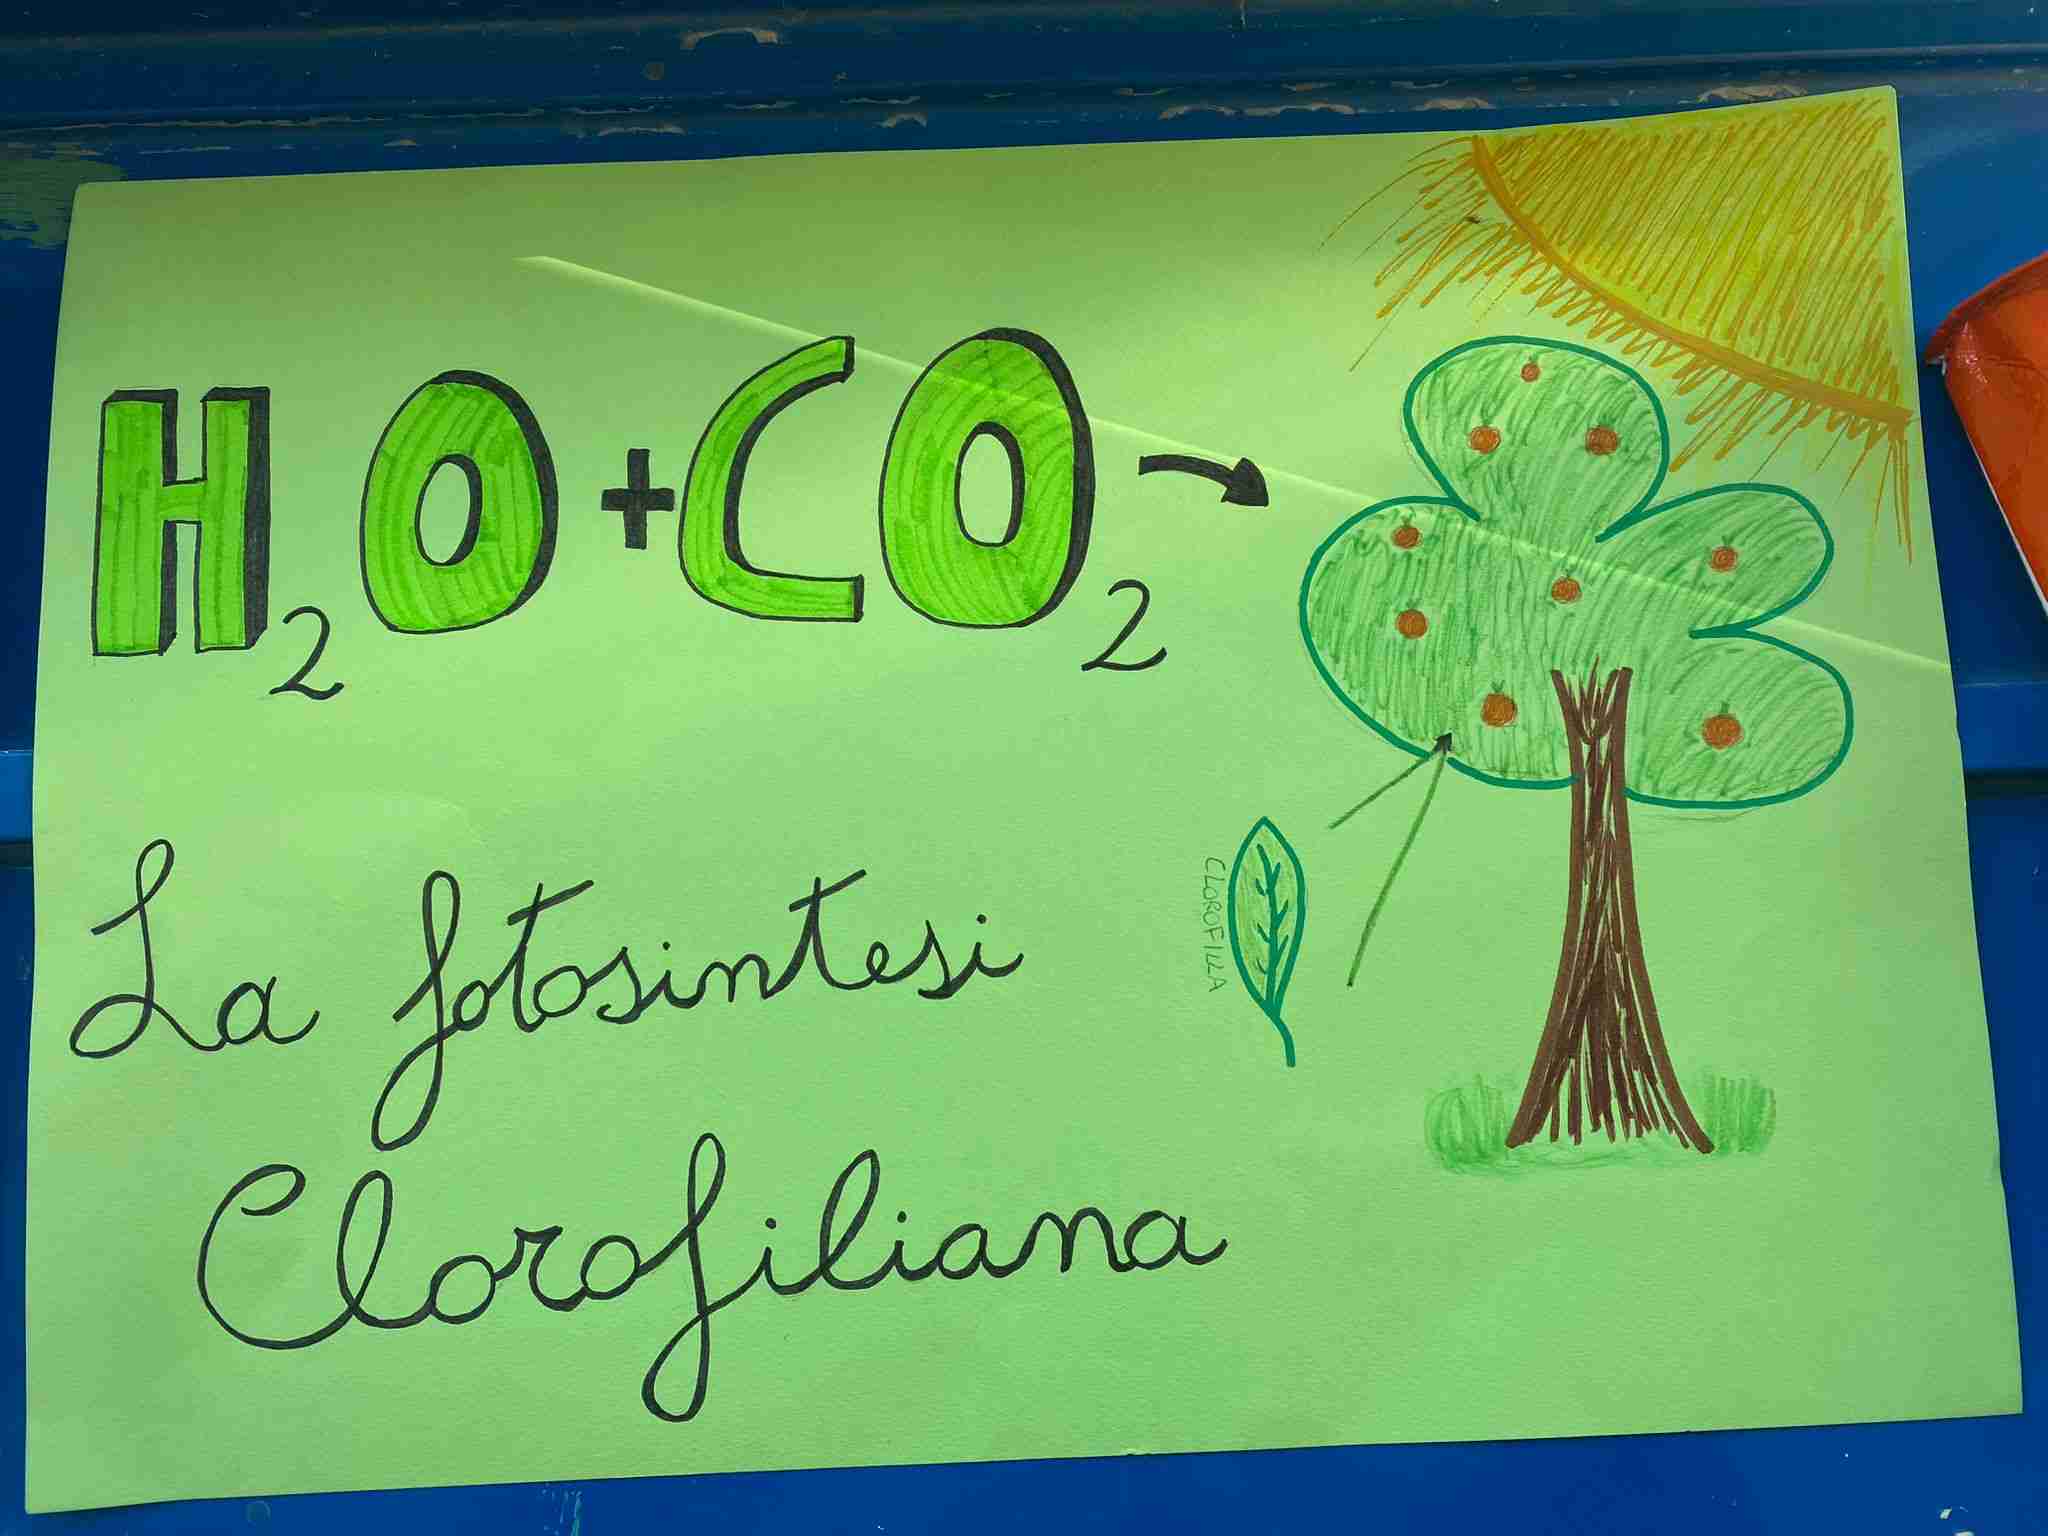 H₂O + CO₂ →
CLOROFILLA
La fotosintesi
Clorofiliana